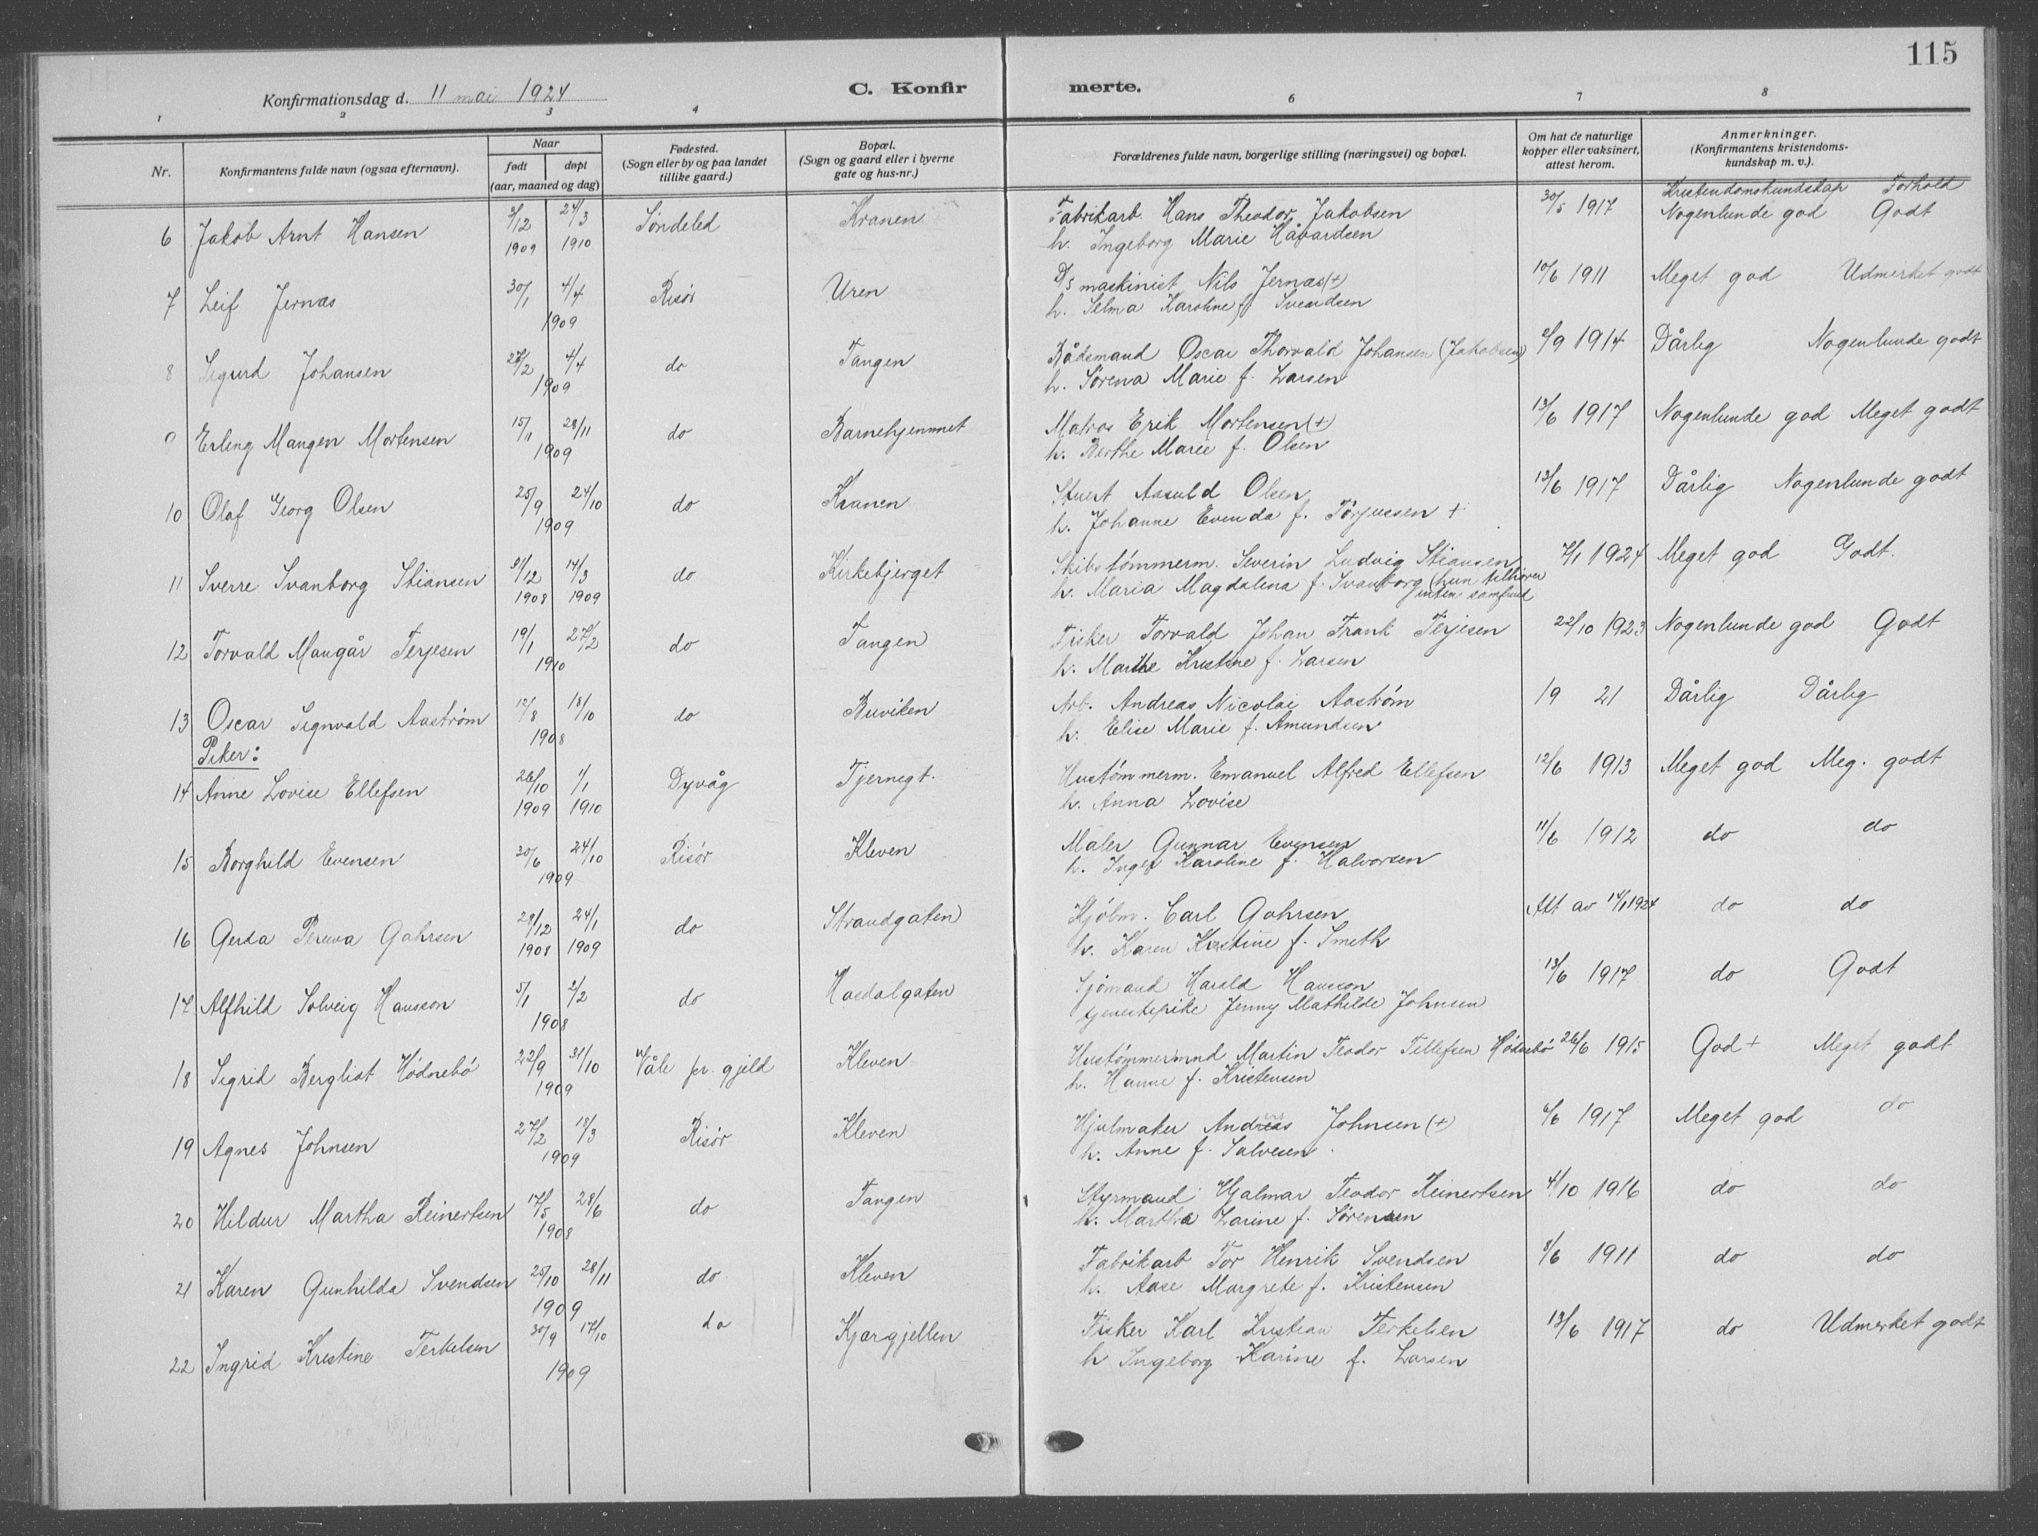 115
Konfirmationsdag d. 11 mai 1924
C. Konfirmerte.
1 2 3 4 6 7 8
Nr.
Konfirmantens fulde navn (ogsaa efternavn).
Naar
født døpt
(aar, maaned og dag)
Fødested.
(Sogn eller by og paa landet
tillike gaard.)
Bopæl.
(Sogn og gaard eller i byerne
gate og hus-nr.)
Forældrenes fulde navn, borgerlige stilling (næringsvei) og bopæl.
Om hat de naturlige
kopper eller vaksinert,
attest herom.
Anmerkninger.
(Konfirmantens kristendoms-
kundskap m. v.).
Kristendomskundskap Forhold
6 Jakob Arnt Hansen 9/12 1909 24/3 1910 Søndeled Kranen Fabrikarb. Hans Theodor Jakobsen 30/5 1917 Nogenlunde god Godt
h. Ingeborg Marie Håvardsen
7 Leif Jernæs 30/1 4/4 1909 Risør Uren D/s maskinist Nils Jernæs (+) 10/6 1911 Meget god Udmerket godt
h. Selma Karoline f. Svendsen
8 Sigurd Johansen 27/2 4/4 1909 do Tangen Bådsmand Oscar Thorvald Johansen (Jakobsen) 2/9 1914 Dårlig Nogenlunde godt
h. Sørena Marie f. Larsen
9 Erling Mangen Mortensen 15/1 28/11 1909 do Barnehjemmet Matros Erik Mortensen (+) 13/6 1917 Nogenlunde god Meget godt
h. Berthe Marie f. Olsen
10 Olaf Georg Olsen 25/9 24/10 1909 do Kranen Stuert Aasuld Olsen 13/6 1917 Dårlig Nogenlunde godt
h. Johanne Evenda f. Torjussen +
11 Sverre Svanborg Stiansen 31/12 1908 14/3 1909 do Kirkebjerget Skibstømmerm. Severin Ludvig Stiansen 7/1 1924 Meget god Godt.
h. Maria Magdalena f. Svanborg (hun tilhører
inten samfund
12 Torvald Mangår Terjesen 19/1 27/2 1910 do Tangen Fisker Torvald Johan Frank Terjesen 22/10 1923 Nogenlunde god Godt
h. Marthe Kristine f. Larsen
13 Oscar Signvald Aastrøm 12/8 18/10 1908 do Buviken Arb. Andreas Nicolai Aastrøm 19 21 Dårlig Dårlig
h. Elise Marie f. Amundsen
Piker:
14 Anne Lovise Ellefsen 26/10 1909 1/1 1910 Dyvåg Tjernegt. Hustømmerm. Emanuel Alfred Ellefsen 12/6 1913 Meget god Meg. godt
h. Anna Lovise
15 Borghild Evensen 30/6 24/10 1909 Risør Kleven Maler Gunnar Evensen 11/6 1912 do do
h. Inger Karoline f. Halvorsen
16 Gerda Gahrsen 29/12 1908 24/1 1909 do Strandgaten Kjøbm. Carl Gahrsen Att av 14/1 1924 do do
h. Karen Kristine f. Smeth
17 Alfhild Solveig Hansson 5/1 2/2 1908 do Hasdalgaten Sjømand Harald Hansson 13/6 1917 do Godt
tjenestepike Jenny Mathilde Johnsen
18 Sigrid Bergliot Hødnebø 22/9 31/10 1909 Våle pr. gjeld Kleven Hustømmermnd Martin Teodor Tellefsen Hødnebø 26/6 1915 God + Meget godt
h. Hanne f. Kristensen
19 Agnes Johnsen 27/2 18/3 1909 Risør Kleven Hjulmaker Andreas Johnsen (+) 6/6 1917 Meget god do
h. Anne f. Salvesen
20 Hildur Martha Reinertsen 17/5 28/6 1908 do Tangen Styrmand Hjalmar Teodor Reinertsen 4/10 1916 do do
h. Martha Larine f. Sørensen
21 Karen Gunhilda Svendsen 25/10 28/11 1909 do Kleven Fabrikarb Tor Henrik Svendsen 8/6 1911 do do
h. Aase Margrete f. Kristensen
22 Ingrid Kristine Terkelsen 30/9 17/10 1909 do Kjærgjellen Fisker Karl Kristian Terkelsen 13/6 1917 do Udmerket godt
h Ingeborg Karine f. Larsen